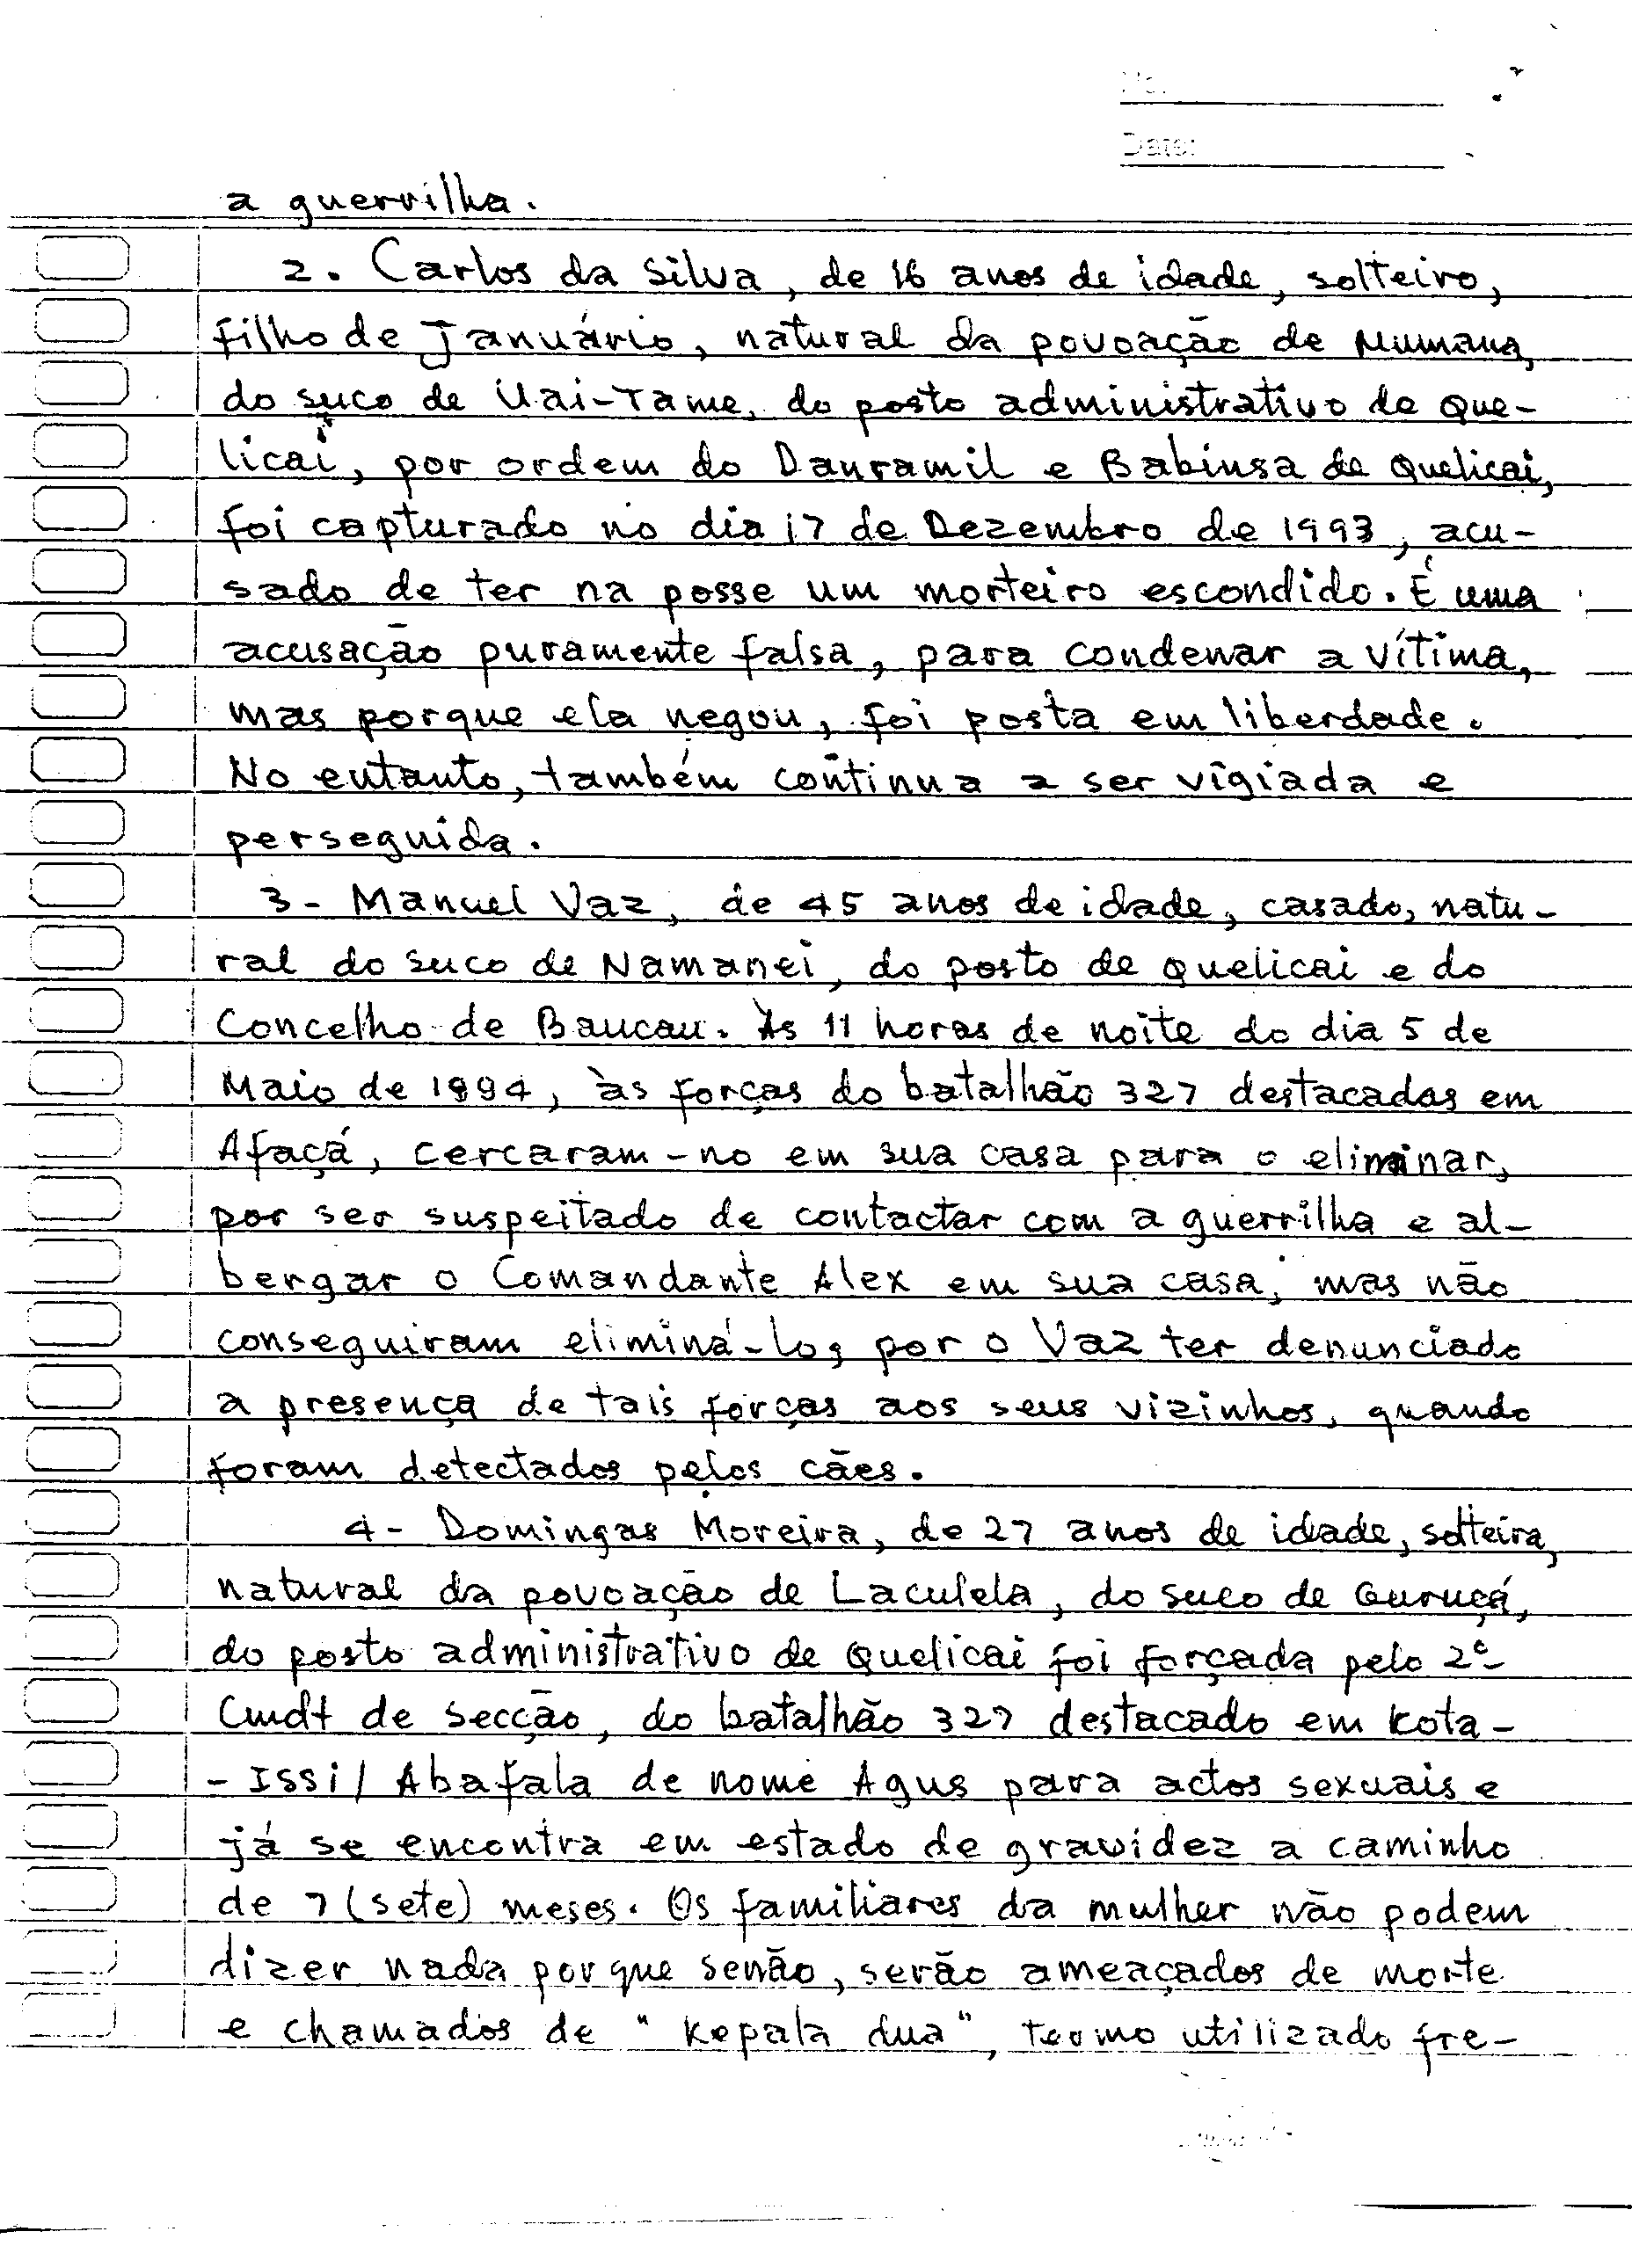 No.
Date:
a guerrilha.
2. Carlos da Silva, de 16 anos de idade, solteiro,
filho de Januário, natural da povoação de Mumana,
do suco de Uai-Tame, do posto administrativo de Que-
licai, por ordem do Danramil e Babinsa de Quelicai,
foi capturado no dia 17 de Dezembro de 1993, acu-
sado de ter na posse um morteiro escondido. É uma
acusação puramente falsa, para condenar a vítima,
mas porque ela negou, foi posta em liberdade.
No entanto, também continua a ser vigiada e
perseguida.
3- Manuel Vaz, de 45 anos de idade, casado, natu-
ral do suco de Namanei, do posto de Quelicai e do
Concelho de Baucau. Às 11 horas de noite do dia 5 de
Maio de 1994, às forças do batalhão 327 destacadas em
Afaçá, cercaram-no em sua casa para o eliminar,
por ser suspeitado de contactar com a guerrilha e al-
bergar o Comandante Alex em sua casa, mas não
conseguiram eliminá-lo, por o Vaz ter denunciado
a presença de tais forças aos seus vizinhos, quando
foram detectados pelos cães.
4- Domingas Moreira, de 27 anos de idade, solteira,
natural da povoação de Laculela, do suco de Guruçá,
do posto administrativo de Quelicai foi forçada pelo 2º
Cmdt de Secção, do batalhão 327 destacado em Kota-
-Issi/Abafala de nome Agus para actos sexuais e
já se encontra em estado de gravidez a caminho
de 7 (sete) meses. Os familiares da mulher não podem
dizer nada porque senão, serão ameaçados de morte
e chamados de "Kepala dua", termo utilizado fre-